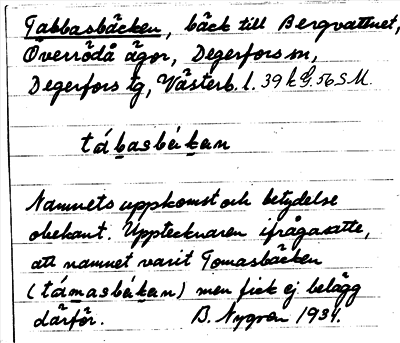 Tabbasbäcken, bäck till Bergvattnet,
Överrödå ägor, Degerfors sn,
Degerfors tg, Västerb. l. 39 k G. 56 S.M.
tábasbákan
Namnets uppkomst och betydelse
obekant. Upptecknaren ifrågasatte,
att namnet varit Tomasbäcken
(támasbákan) men fick ej belägg
därför. B. Nygren 1934.